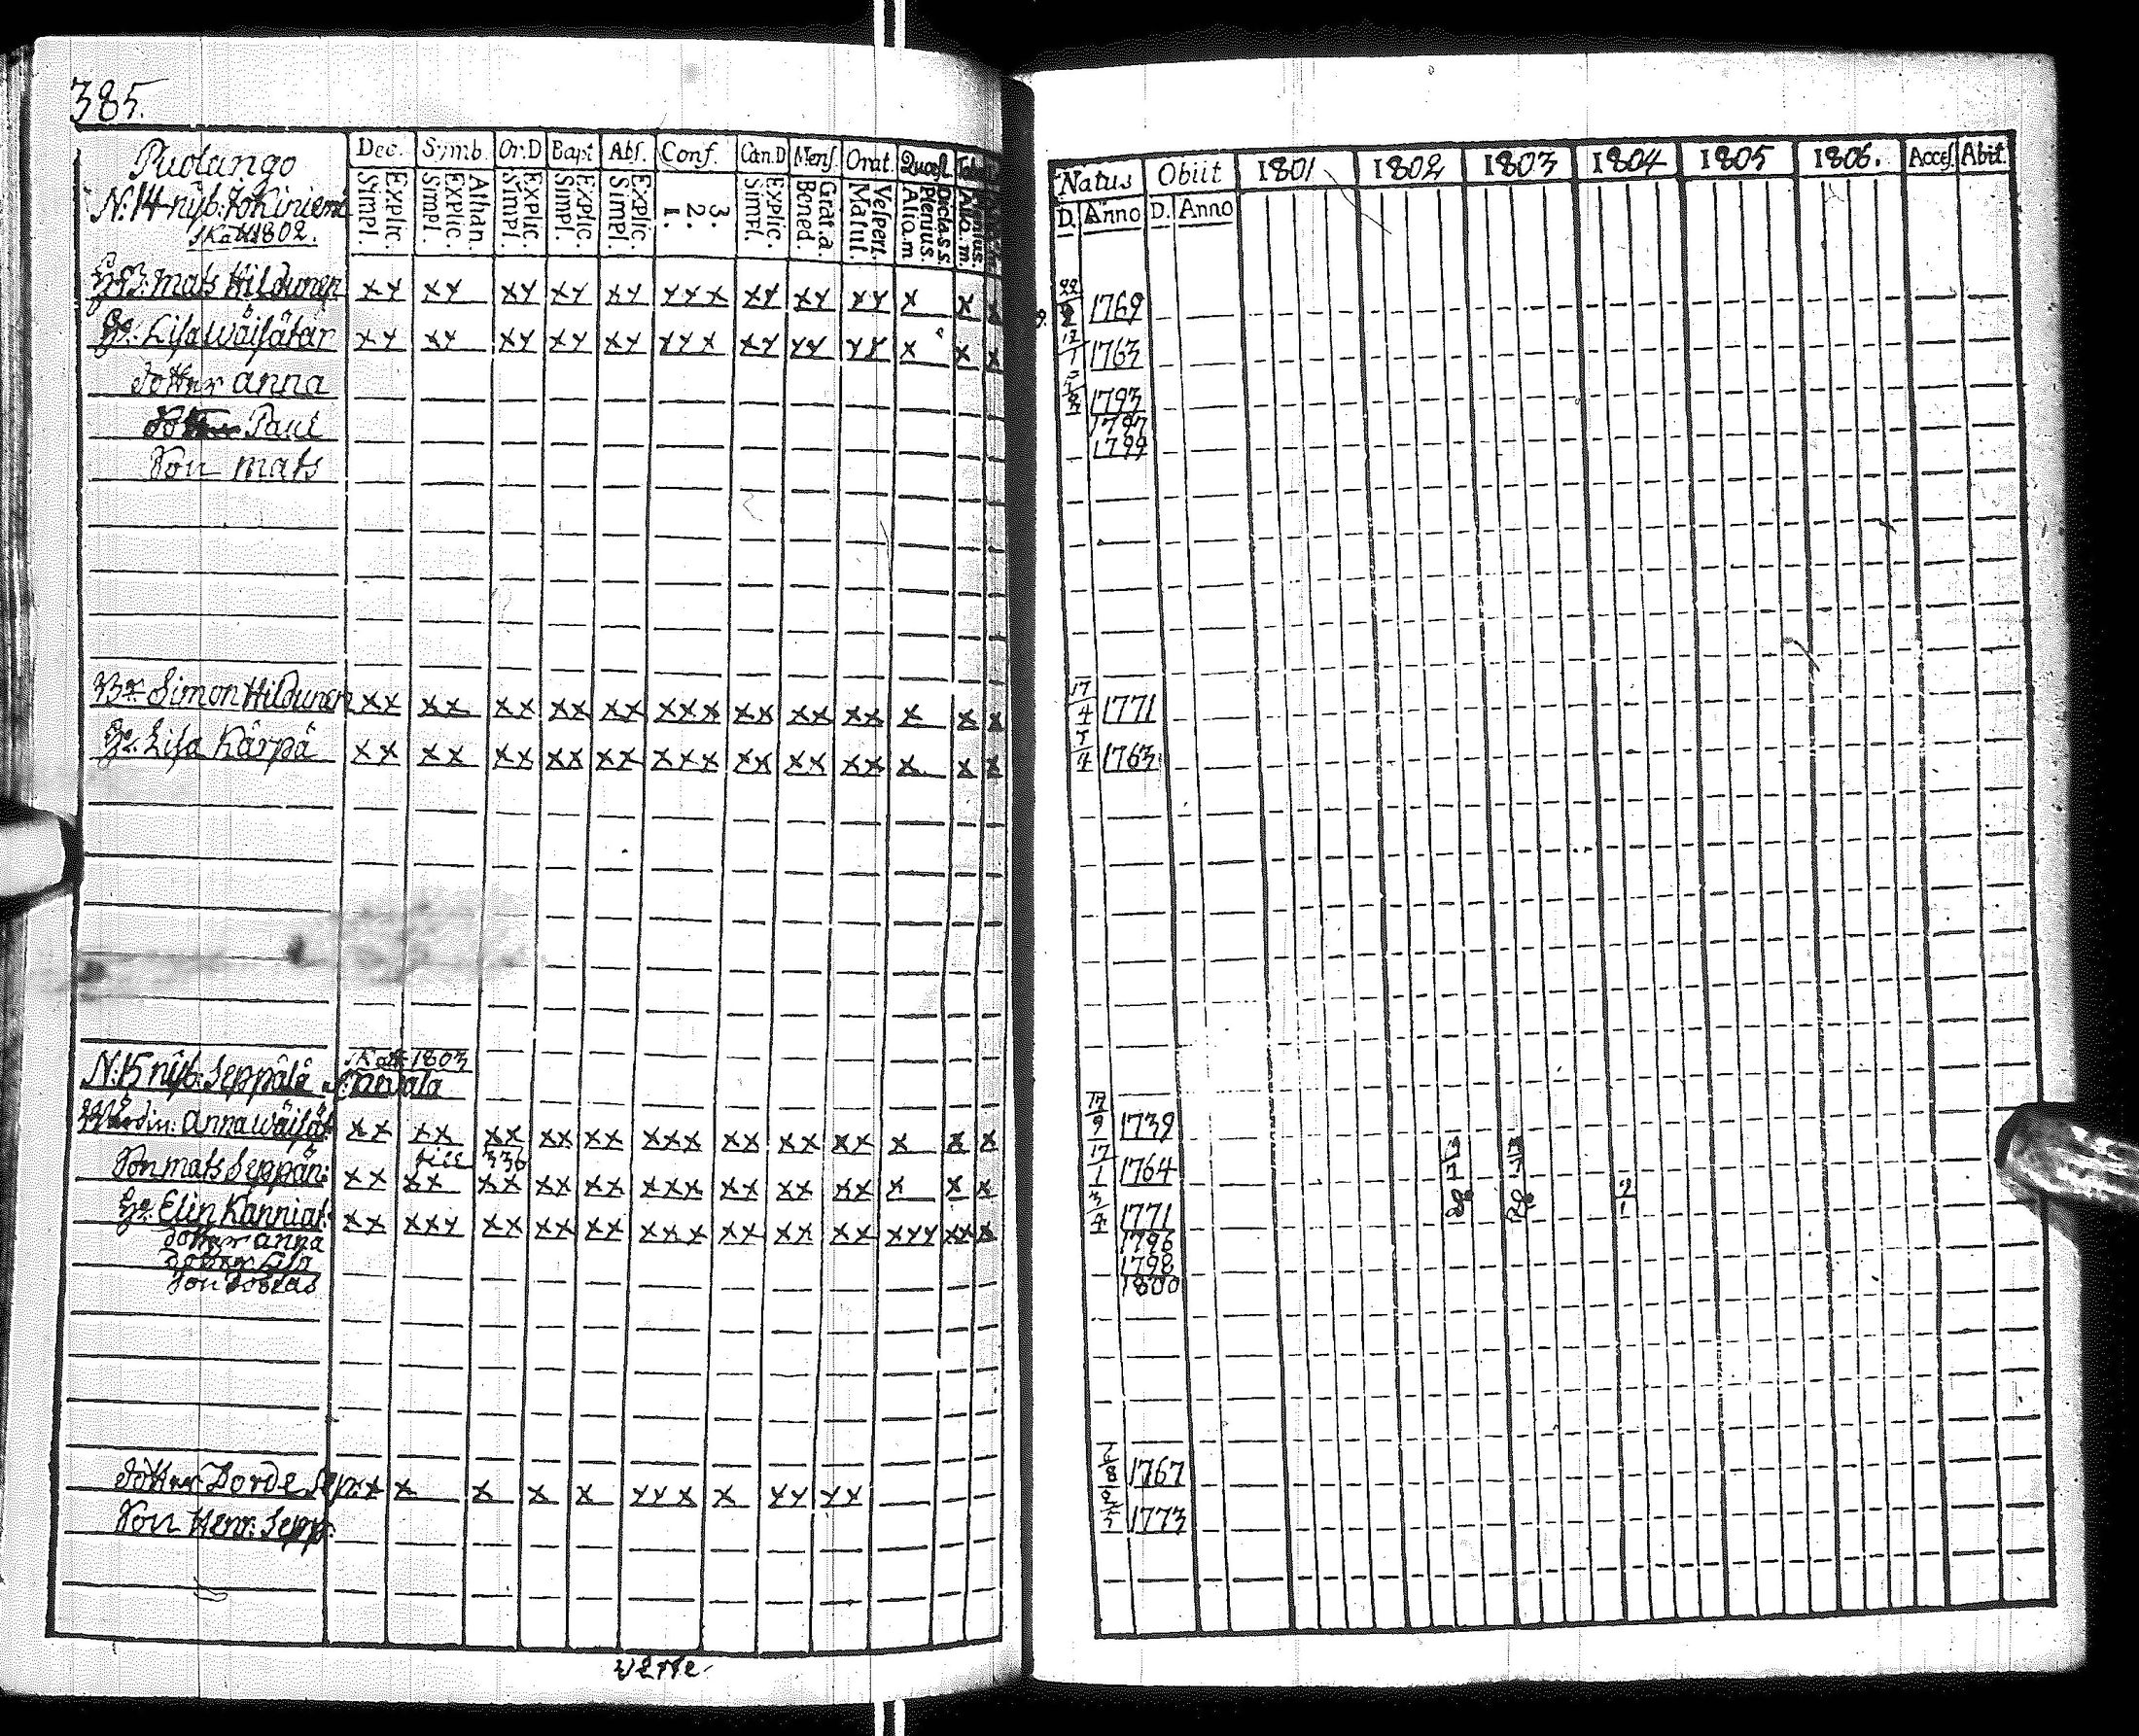 385.
Puolango Dec. Symb. Or.D Bapt Abs. Conf. Can.D Mens. Orat. Quæst. Tab.
N:14 nÿb: Jokiniemi
Skatt 1802.
Simpl. Explic. Simpl. Explic. Athan. Simpl. Explic. Simpl. Explic. Simpl. Explic. 1. 2. 3. Simpl. Explic. Bened. Grat.a. Matut. Vespert. Aliq.m Plenius. Dict.a S.S. Aliq.m. Plenius.
Mats Hildunen xx xx xx xx xx xxx xx xx xx x x x
H: Lisa Wäisätär xx xx xx xx xx xxx xx xx xx x x x
dotter Anna
Paul
Son Mats
Br: Simon Hildunen xx xx xx xx xx xxx xx xx xx x x x
H: Lisa Kärpä xx xx xx xx xx xxx xx xx xx x x x
Skatt 1803
N:15 nÿb: Seppälä
Wärdin: Anna Wäisät: xx xx xx xx xx xxx xx xx xx x x x
till 336
Son Mats Seppän: xx xx xx xx xx xxx xx xx xx x x x
H: Elin Kanniat: xx xxx xx xx xx xxx xx xx xx xxx xx x
dotter Anna
dotter Lisa
Son Tobias
dotter Dorde Sep: xx x x x x xxx x xx xx
Son Henr: Sepp:
Natus Obiit 1801 1802 1803 1804 1805 1806. Acces. Abit.
D. Anno D. Anno
22 1769
12/1 1763
1793
1797
1799
17/4 1771
5/4 1763
17/9 1739
17/1 1764
3/4 1771 2/1
1796
1798
1800
6/8 1767
1773